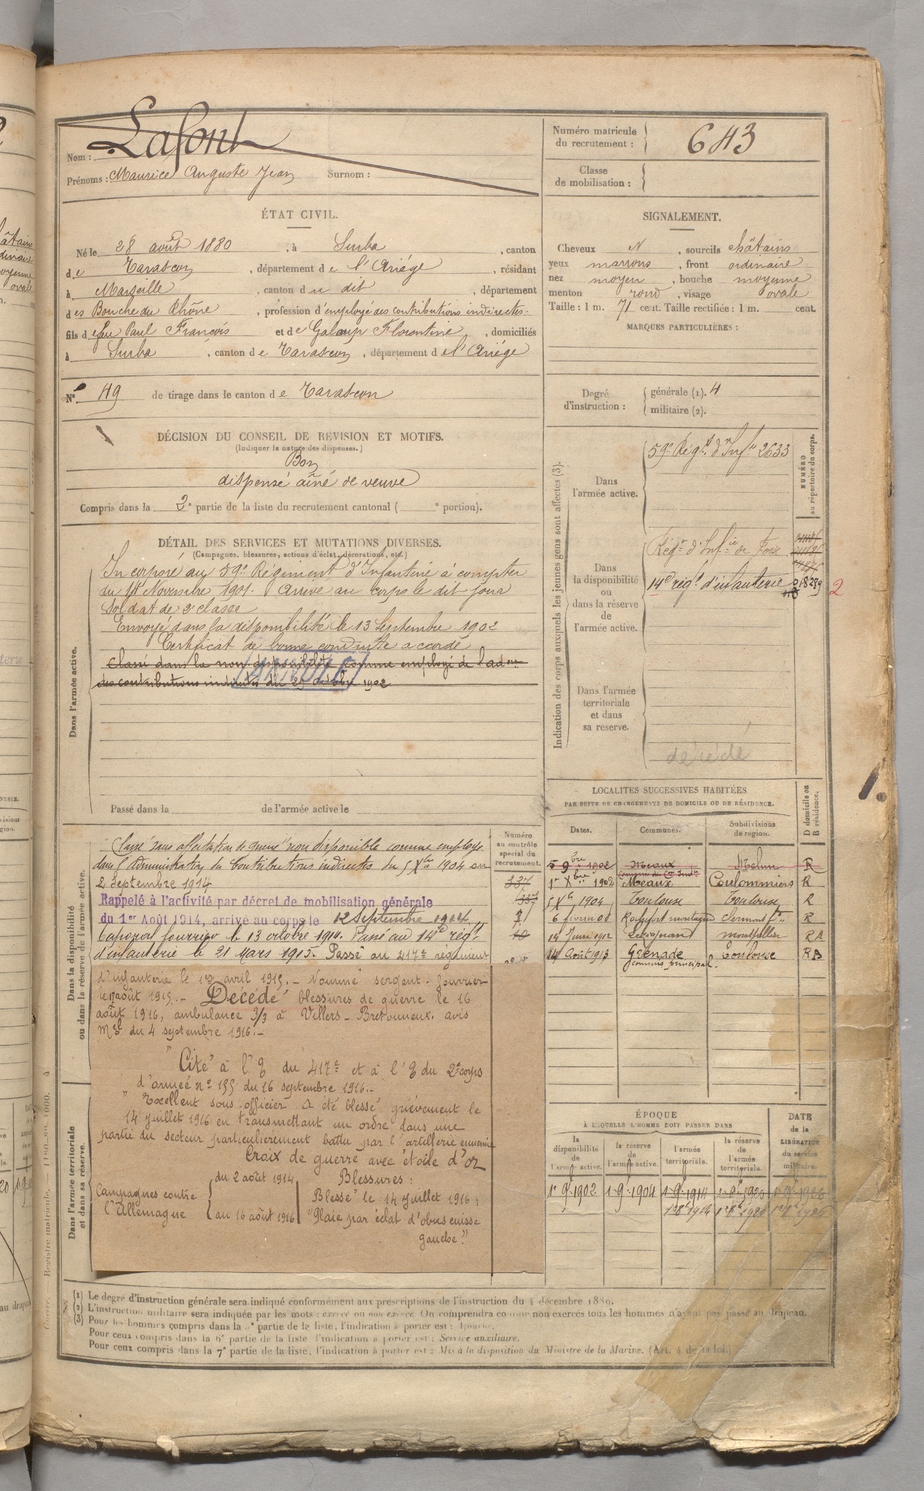 Nom : Lafont
Prénoms : Maurice Auguste Jean Surnom :
Numéro matricule du recrutement : 643
Classe de mobilisation :
ÉTAT CIVIL.
Né le 28 août 1880, à Surba, canton
de Tarascon, département de l'Ariège, résidant
à Marseille, canton du dit, département
des Bouche du Rhône, profession d'employé des contributions indirectes.
fils de feu Paul François et de Florentine, domiciliés
à Surba, canton de Tarascon, département de l'Ariège
N° 49 de tirage dans le canton de Tarascon
DÉCISION DU CONSEIL DE RÉVISION ET MOTIFS.
(Indiquer la nature des dispenses.)
Bon
dispensé aîné de veuve
Compris dans la 2e partie de la liste du recrutement cantonal ( e portion).
SIGNALEMENT.
Cheveux N, sourcils châtains
yeux marrons, front ordinaire
nez moyen, bouche moyenne
menton rond, visage ovale
Taille : 1 m. 71 cent. Taille rectifiée : 1 m. cent.
MARQUES PARTICULIÈRES :
Degré d'instruction : générale (1). 4
militaire (2).
DÉTAIL DES SERVICES ET MUTATIONS DIVERSES.
(Campagnes, blessures, actions d'éclat, décorations, etc.)
Dans l'armée active.
Incorporé au 59e Régiment d'Infanterie à compter
du 14 Novembre 1901. Arrivé au corps le dit jour
Soldat de 2e classe
Envoyé dans la disponibilité le 13 Septembre 1902
Certificat de bonne conduite accordé
Classé dans la non disponibilité comme employé de l'adon
des contributions indirectes du 1902
ANNULÉ
Passé dans la de l'armée active le
Indication des corps auxquels les jeunes gens sont affectés (3).
NUMÉRO au répertoire du corps.
Dans l'armée active.
59e Régt d'Infie 2633
Dans la disponibilité ou dans la réserve de l'armée active.
Régt d'Infie de Foix
14e régt d'infanterie
2
Dans l'armée territoriale et dans sa réserve.
décédé
Dans la disponibilité ou dans la réserve de l'armée active.
Numéro au contrôle spécial du recrutement.
Classé sans affectation de non disponible comme employé
dans l'Administration des Contributions indirectes du 5 Xbre 1904 au
2 septembre 1914
Rappelé à l'activité par décret de mobilisation générale
du 1er Août 1914, arrivé au corps le 12 Septembre 1914
Caporal fourrier le 13 octobre 1914. Passé au 14e régt
d'infanterie le 21 Mars 1915. Passé au 417e régiment
d'infanterie le 1er avril 1915. - Nommé sergent-fourrier
le août 1915. - Décédé blessures de guerre le 16
août 1916, ambulance 3/3 à Villers-Bretonneux. avis
du 4 septembre 1916.-
"Cité" à l'O du 417e et à l'O du 2e corps
d'armée n° 195 du 16 septembre 1916.-
"Excellent sous-officier. A été blessé grièvement le
14 juillet 1916 en transmettant un ordre dans une
partie du secteur particulièrement battu par l'artillerie ennemie
Croix de guerre avec étoile d'or
Dans l'armée territoriale et dans sa réserve.
Campagnes contre l'Allemagne
du 2 août 1914
au 16 août 1916
Blessures :
Blessé le 14 juillet 1916 ;
"Plaie par éclat d'obus cuisse
gauche."
LOCALITÉS SUCCESSIVES HABITÉES
PAR SUITE DE CHANGEMENTS DE DOMICILE OU DE RÉSIDENCE.
Dates. Communes. Subdivisions de région. D domicile ou R résidence.
5 9bre 1902 Meaux Melun R
1er Xbre 1902 Meaux Coulommiers R
5 Xbre 1904 Toulouse Toulouse R
6 février 08 Rochefort montagne Clermont R
14 Juin 1912 Lézignan Montpellier
14 Août 1913 Grenade Toulouse
ÉPOQUE
À LAQUELLE L'HOMME DOIT PASSER DANS
la disponibilité de l'armée active. la réserve de l'armée active. l'armée territoriale. la réserve de l'armée territoriale.
DATE de la LIBÉRATION du service militaire.
1er 9bre 1902 1-9-1904
(1) Le degré d'instruction générale sera indiqué conformément aux prescriptions de l'instruction du 4 décembre 1889.
(2) L'instruction militaire sera indiquée par les mots : exercé ou non exercé. On comprendra comme non exercés tous les hommes n'ayant pas passé au drapeau.
(3) Pour les hommes compris dans la partie de la liste, l'indication à porter est :
Pour ceux compris dans la 6e partie de la liste l'indication à porter est : Service auxiliaire.
Pour ceux compris dans la 7e partie de la liste, l'indication à porter est : Mis à la disposition du Ministre de la Marine. (Art. 4 de la loi.)